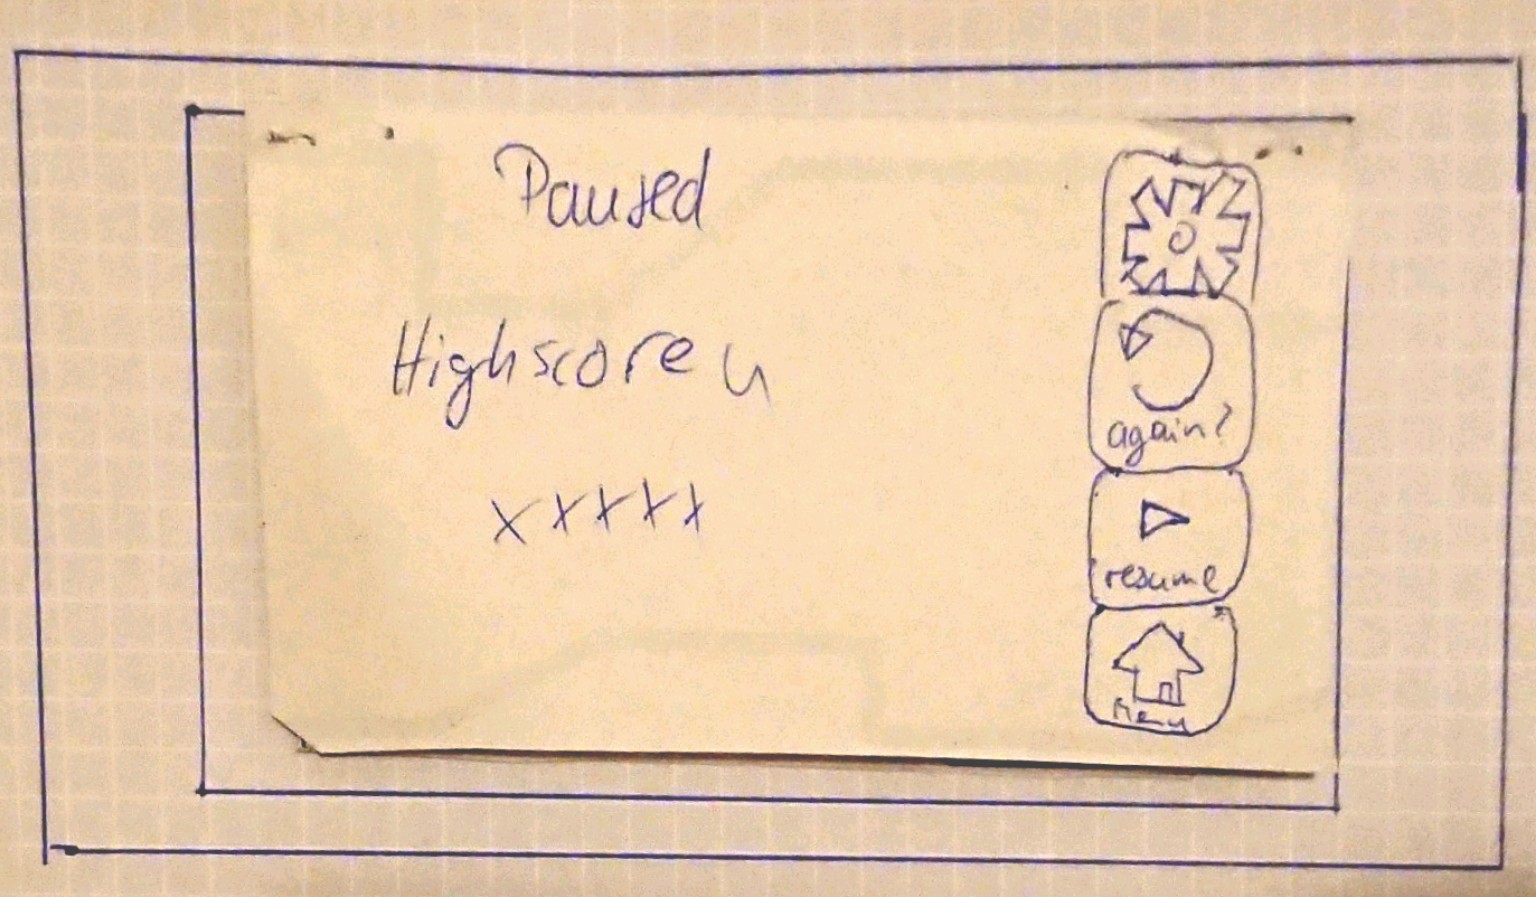 Paused
Highscore
xxxxx
again?
resume
Menu